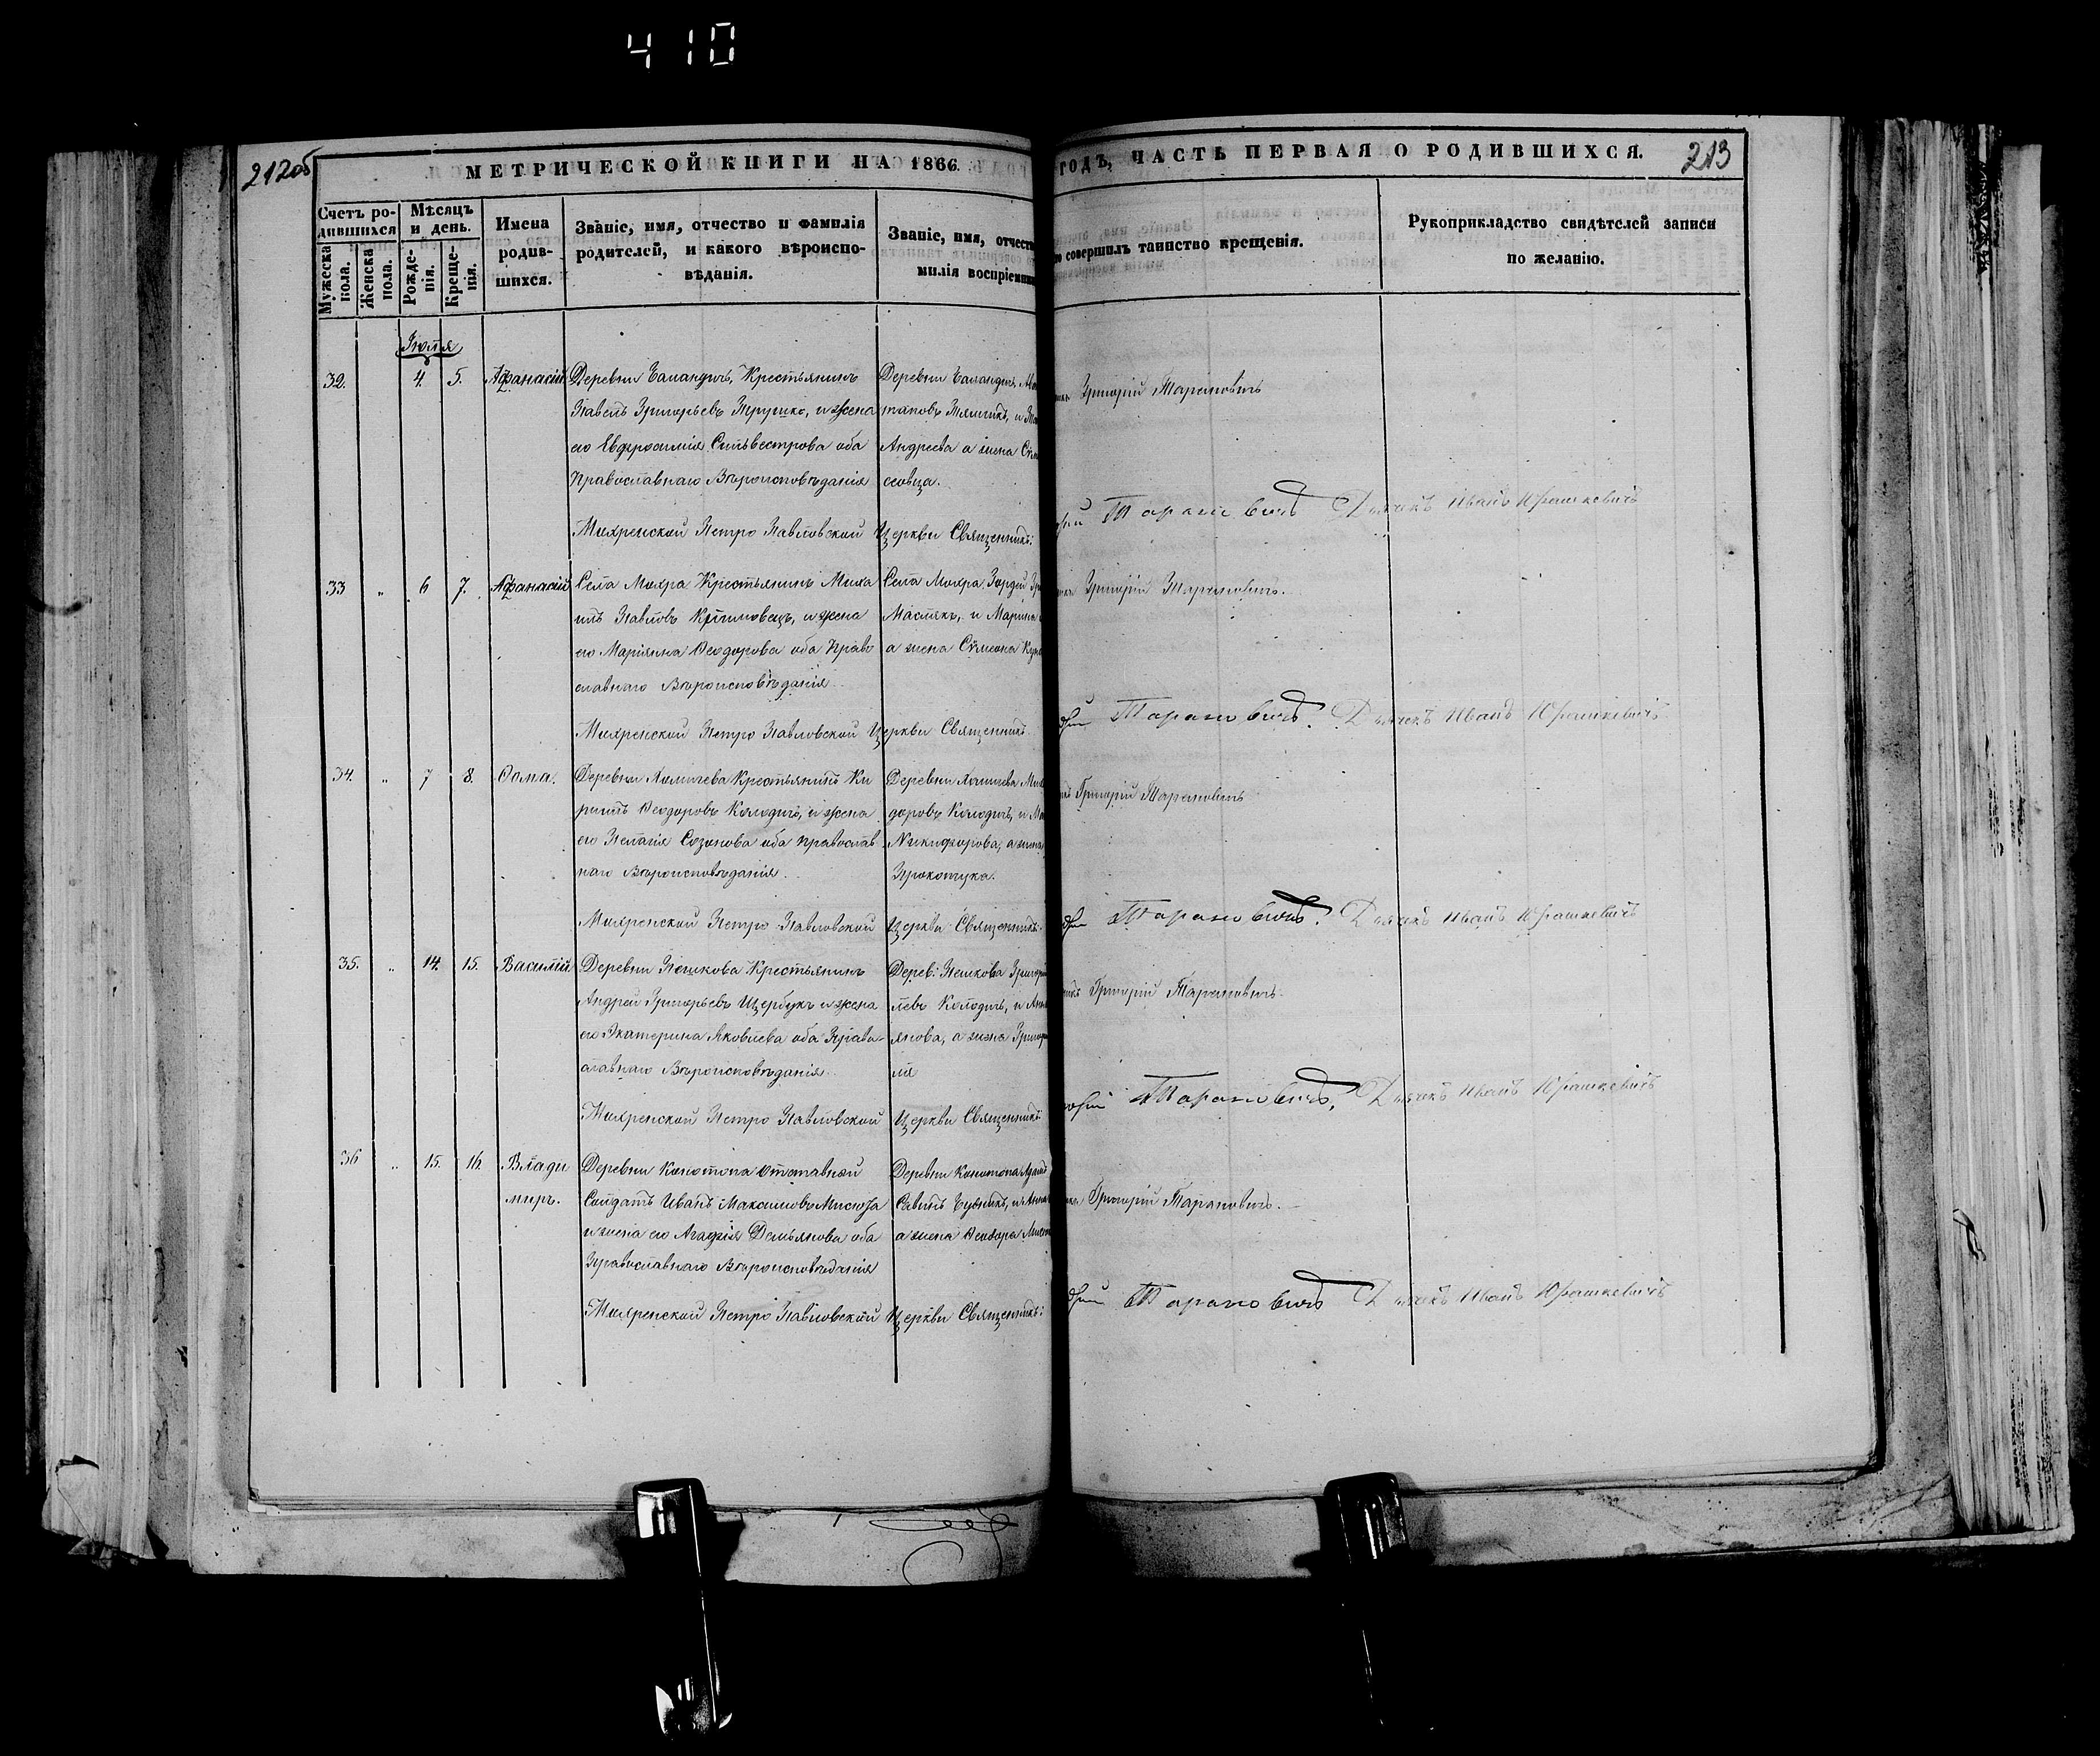 410
212об
МЕТРИЧЕСКОЙ КНИГИ НА 1866
ГОДЪ, ЧАСТЬ ПЕРВАЯ О РОДИВШИХСЯ.
213
Счетъ ро-
дившихся
Мужеска
пола.
Женска
пола.
Мѣсяцъ
и день.
Рожде-
нія.
Креще-
нія.
Имена
родив-
шихся.
Званіе, имя, отчество и фамилія
родителей, и какого вѣроиспо-
вѣданія.
Званіе, имя, отчеств
милія воспріемни
о совершилъ таинство крещенія.
Рукоприкладство свидѣтелей записи
по желанію.
Іюля
32. 4. 5. Афанасій
Деревни Крестьянинъ
Павелъ Григорьевъ и жена
его Евфросинія Сильвестрова оба
Православнаго Вѣроисповѣданія
Деревни
Андреева а жена
Григорій Тарановичъ
Мохренской Петро Павловской Церкви Священникъ:
Тарановичъ Дьячокъ Иванъ Юрашкевичъ
33 „ 6 7. Афанасій
Села Мохра Крестьянинъ Миха
илъ Павловъ и жена
его Маріянна Ѳеодорова оба Право
славнаго Вѣроисповѣданія.
Села Мохра
и Марина
а жена Сѵмеона
Григорій Тарановичъ.
Мохренской Петро Павловской Церкви Священникъ
Тарановичъ. Дьячокъ Иванъ Юрашкевичъ
34. „ 7 8. Ѳома.
Деревни Крестьянинъ Ки
риллъ Ѳеодоровъ Колодичъ, и жена
его Пелагія Созонова оба православ
наго Вѣроисповѣданія.
Деревни
доровъ Колодичъ, и
Никифорова, а жена
Прокопука.
Григорій Тарановичъ
Мохренской Петро Павловской Церкви Священникъ
Тарановичъ. Дьячокъ Иванъ Юрашкевичъ
35. „ 14. 15. Василій
Деревни Пешкова Крестьянинъ
Андрей Григорьевъ Щербукъ и жена
его Екатерина Яковлева оба Право-
славнаго Вѣроисповѣданія.
Дерев: Пешкова
левъ Колодичъ, и
а жена
Григорій Тарановичъ.
Мохренской Петро Павловской Церкви Священникъ
Тарановичъ, Дьячокъ Иванъ Юрашкевичъ
36 „ 15. 16. Влади
миръ.
Деревни Конотопа Отставной
Солдатъ Иванъ Максимовъ Мисюра
и жена его Агафія Демьянова оба
Православнаго Вѣроисповѣданія
Деревни Конотопа
а жена Ѳеодора
Григорій Тарановичъ.
Мохренской Петро Павловской Церкви Священникъ:
Тарановичъ Дьячокъ Иванъ Юрашкевичъ